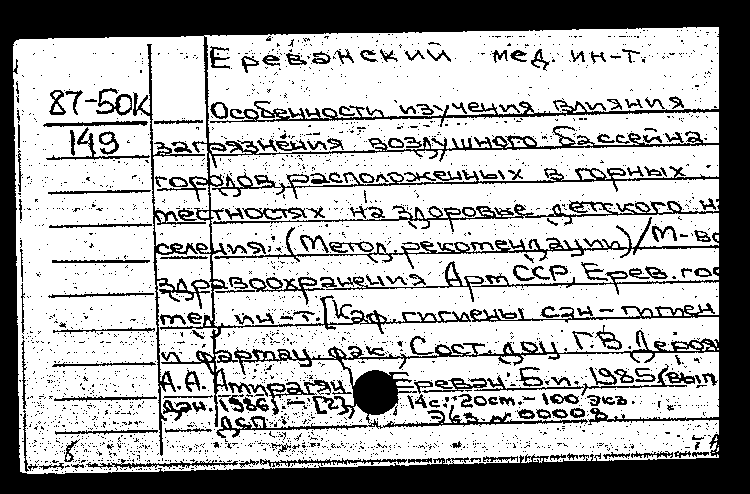 Ереванский мед. ин-т.
87-50К
149
Особенности изучения влияния
загрязнения воздушного бассейна
городов, расположенных в горных
местностях на здоровье детского н
селения: (Метод. рекомендации) / М-во
здравоохранения АрмССР, Ерев. гос
мед. ин-т. [Каф. гигиены сан-гигиен
и фармац. фак.; Сост. доц. Г.В. Дероя
А.А. Амирагян] Ереван: Б.и., 1985 (вып
дан. 1986). - [2], 14 с.; 20 см. - 100 экз.
ДСП. Экз. № 00008.